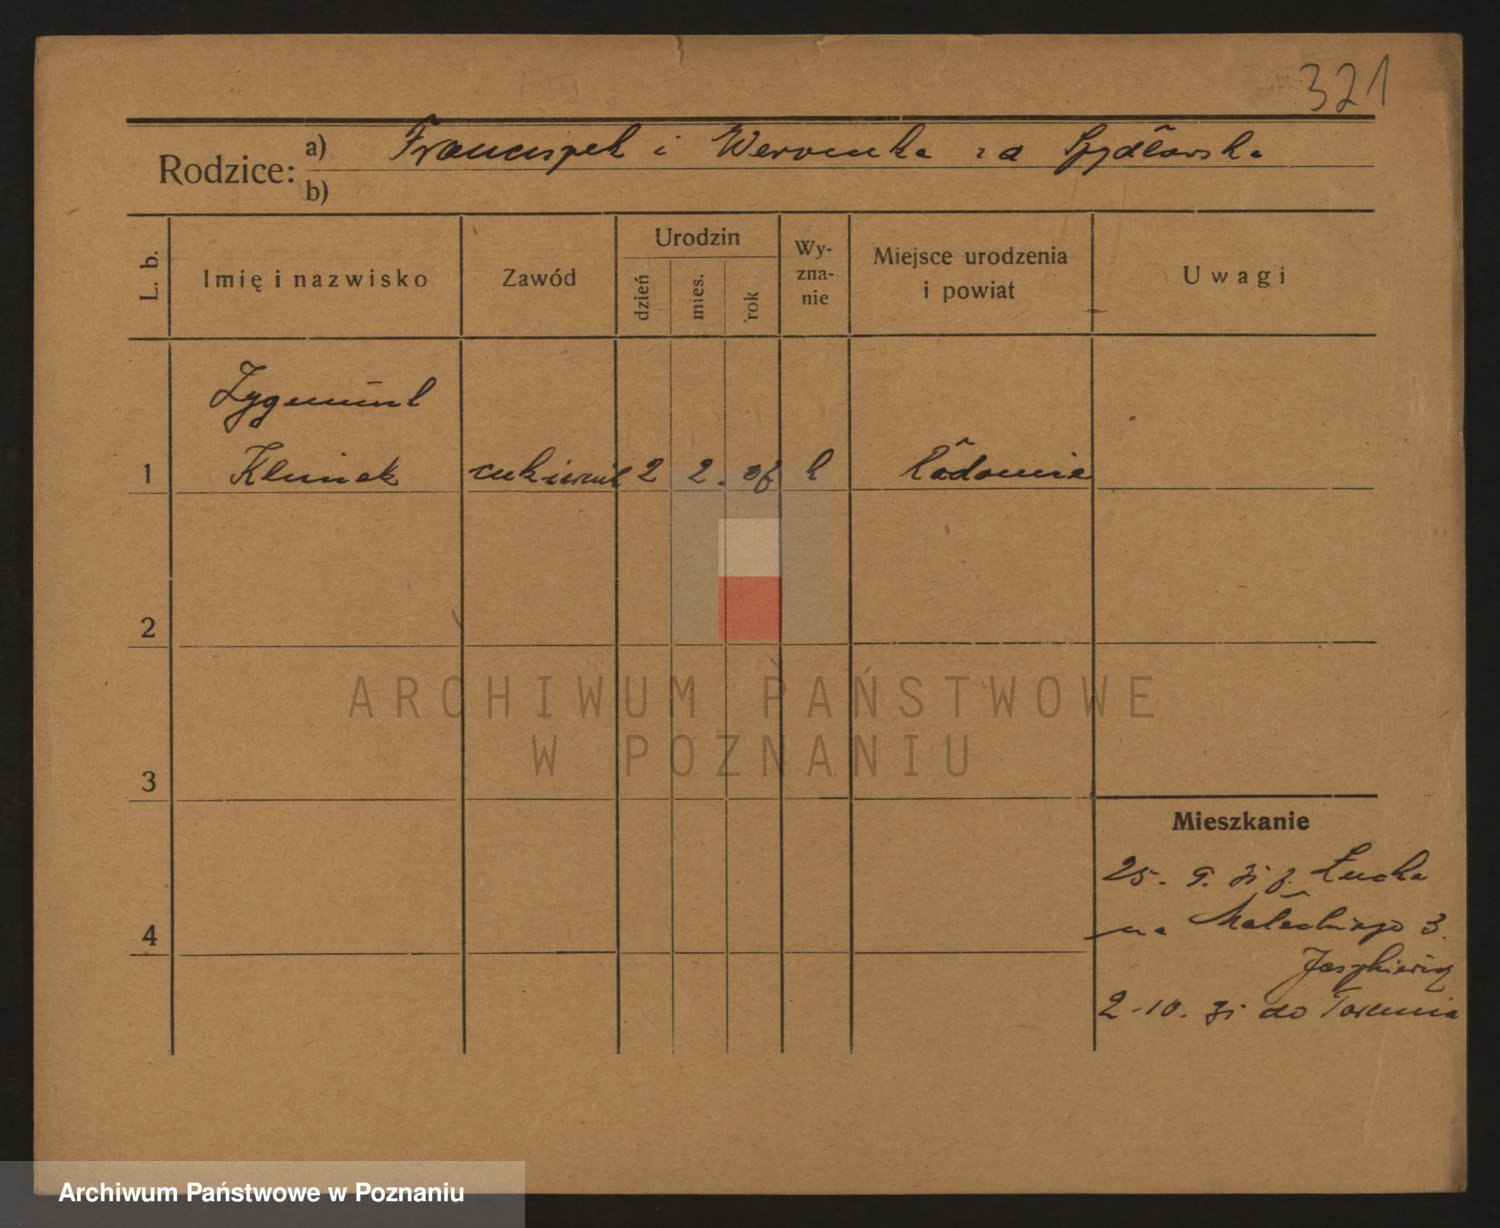 321
Rodzice: a) Franciszek i Weronika z d Szydłowska
b)
L. b.
Imię i nazwisko
Zawód
Urodzin
dzień
mies.
rok
Wy-
zna-
nie
Miejsce urodzenia
i powiat
Uwagi
Zygmunt
1 Klimek cukiernik 2 2. k
2
3
4
Mieszkanie
25. 9. z
na Małeckiego 3.
2-10. do Torunia
ARCHIWUM PAŃSTWOWE
W POZNANIU
Archiwum Państwowe w Poznaniu